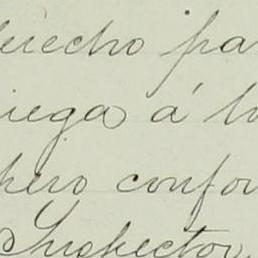 derecho pa
iega á lo
pero confor
Inspector